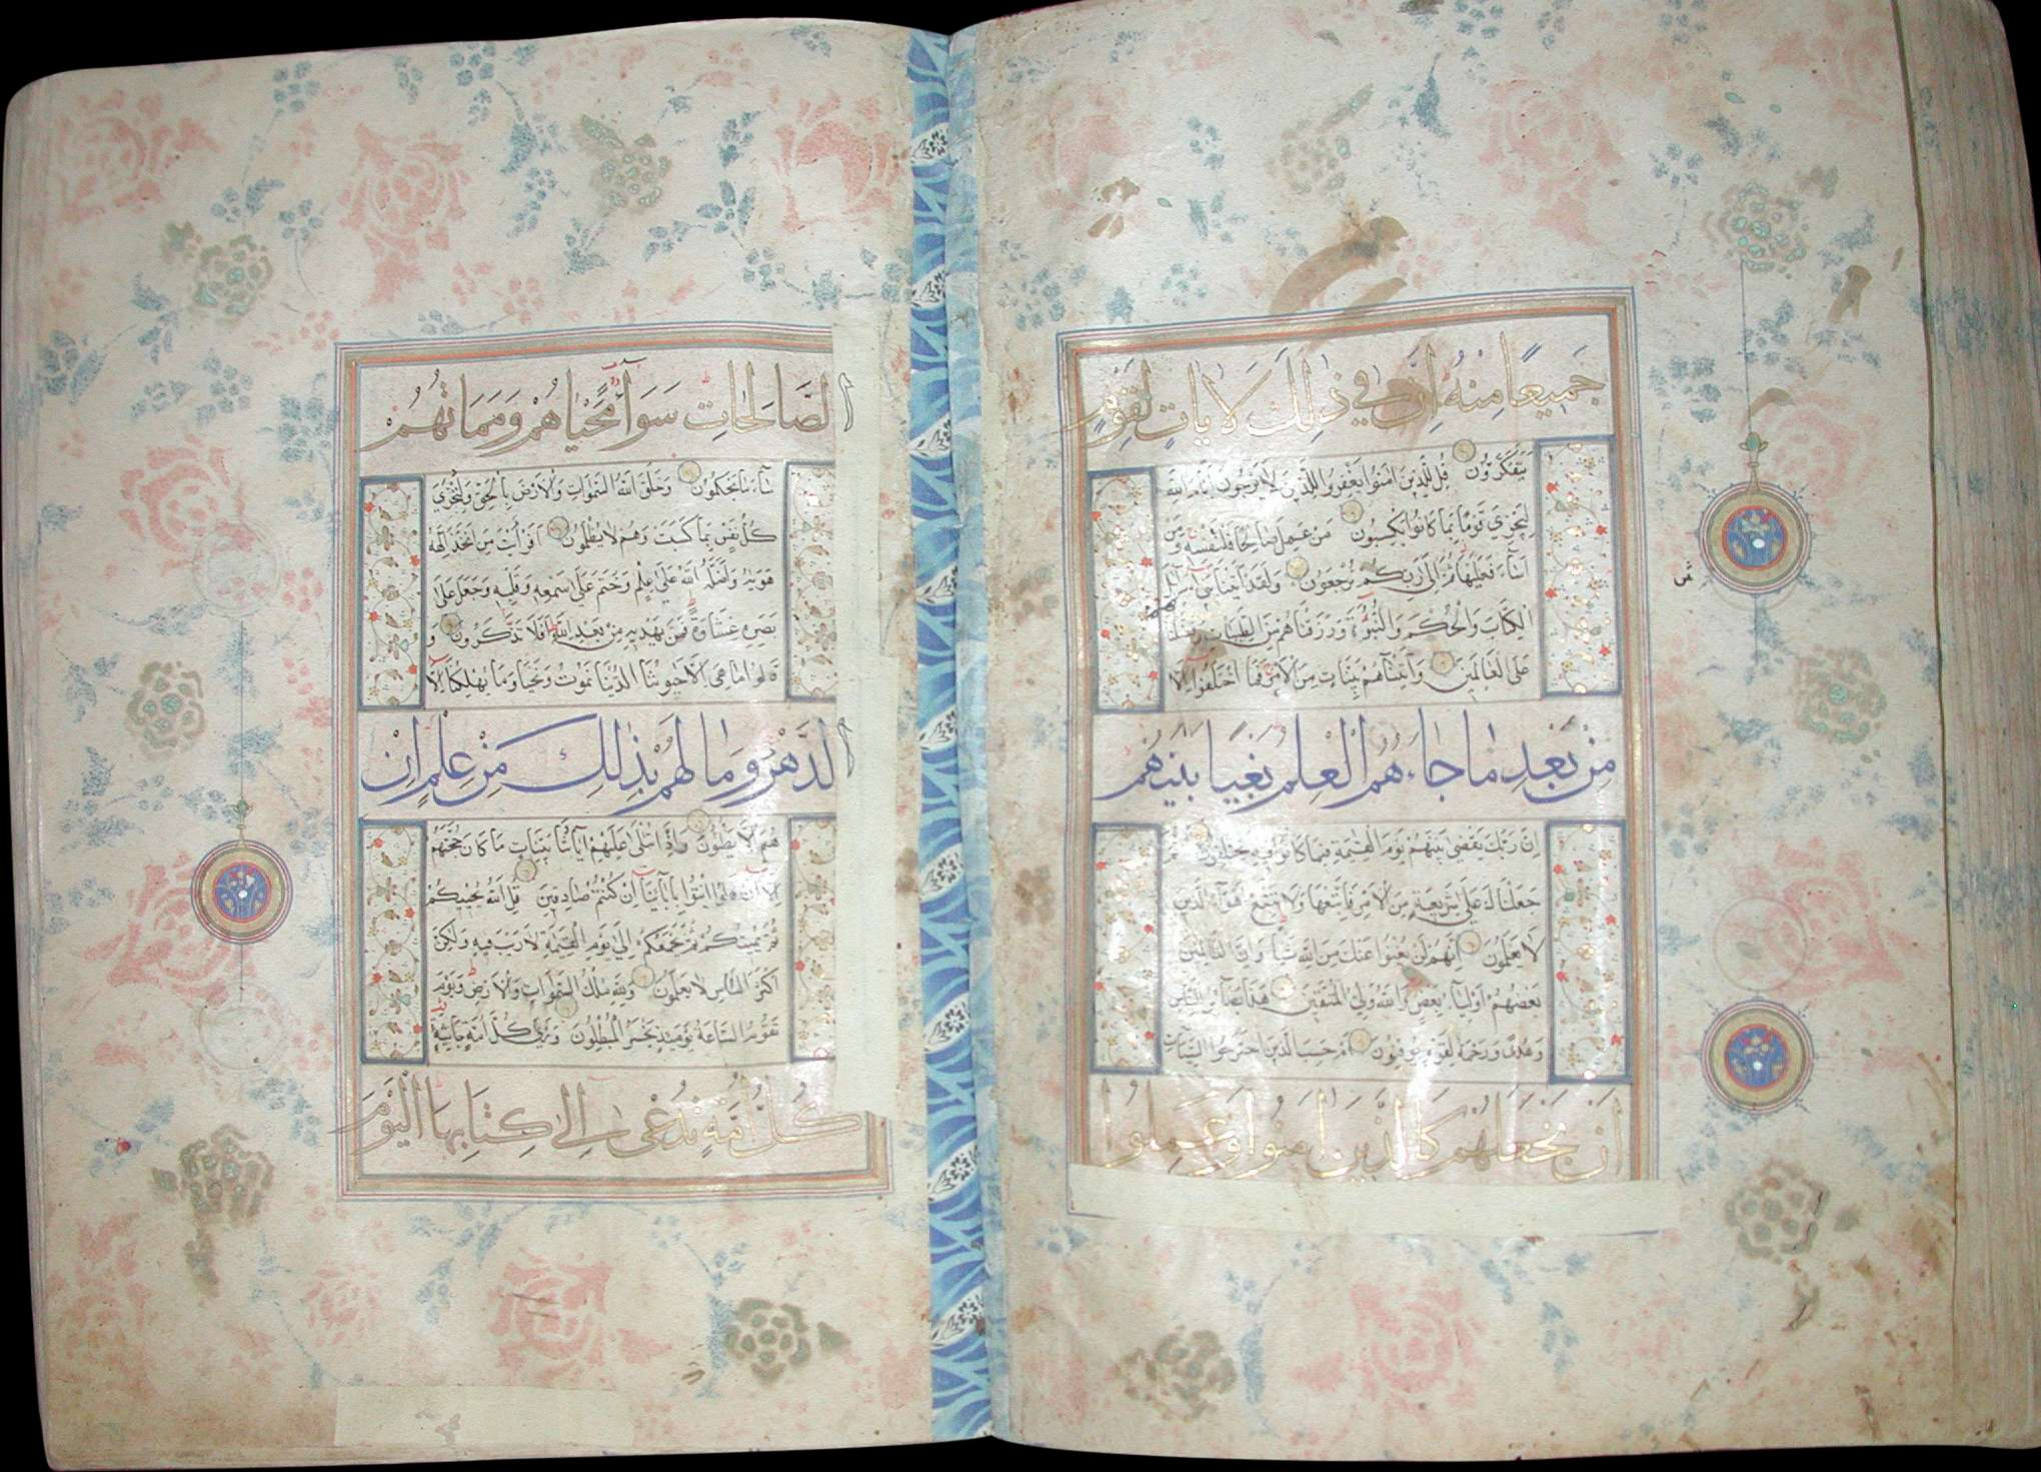 جَمِيعًا مِنْهُ اِنَّ فِي ذٰلِكَ لَاٰيَاتٍ لِقَوْمٍ
يَتَفَكَّرُونَ قُلْ لِلَّذِينَ اٰمَنُوا يَغْفِرُوا لِلَّذِينَ لَا يَرْجُونَ اَيَّامَ اللّٰهِ
لِيَجْزِيَ قَوْمًا بِمَا كَانُوا يَكْسِبُونَ مَنْ عَمِلَ صَالِحًا فَلِنَفْسِهِ وَمَنْ
اَسَآءَ فَعَلَيْهَا ثُمَّ اِلٰى رَبِّكُمْ تُرْجَعُونَ وَلَقَدْ اٰتَيْنَا بَنِي اِسْرَآئِلَ
الْكِتَابَ وَالْحُكْمَ وَالنُّبُوَّةَ وَرَزَقْنَاهُمْ مِنَ الطَّيِّبَاتِ وَفَضَّلْنَاهُمْ
عَلَى الْعَالَمِينَ وَاٰتَيْنَاهُمْ بَيِّنَاتٍ مِنَ الْاَمْرِ فَمَا اخْتَلَفُوا اِلَّا
مِنْ بَعْدِ مَا جَاءَهُمُ الْعِلْمُ بَغْيًا بَيْنَهُمْ
اِنَّ رَبَّكَ يَقْضِي بَيْنَهُمْ يَوْمَ الْقِيٰمَةِ فِيمَا كَانُوا فِيهِ يَخْتَلِفُونَ ثُمَّ
جَعَلْنَاكَ عَلٰى شَرِيعَةٍ مِنَ الْاَمْرِ فَاتَّبِعْهَا وَلَا تَتَّبِعْ اَهْوَآءَ الَّذِينَ
لَا يَعْلَمُونَ اِنَّهُمْ لَنْ يُغْنُوا عَنْكَ مِنَ اللّٰهِ شَيْئًا وَاِنَّ الظَّالِمِينَ
بَعْضُهُمْ اَوْلِيَآءُ بَعْضٍ وَاللّٰهُ وَلِيُّ الْمُتَّقِينَ هٰذَا بَصَآئِرُ لِلنَّاسِ
وَهُدًى وَرَحْمَةٌ لِقَوْمٍ يُوقِنُونَ اَمْ حَسِبَ الَّذِينَ اجْتَرَحُوا السَّيِّاٰتِ
اَنْ نَجْعَلَهُمْ كَالَّذِينَ اٰمَنُوا وَعَمِلُوا
الصَّالِحَاتِ سَوَآءً مَحْيَاهُمْ وَمَمَاتُهُمْ
سَآءَ مَا يَحْكُمُونَ وَخَلَقَ اللّٰهُ السَّمٰوَاتِ وَالْاَرْضَ بِالْحَقِّ وَلِتُجْزٰى
كُلُّ نَفْسٍ بِمَا كَسَبَتْ وَهُمْ لَا يُظْلَمُونَ اَفَرَاَيْتَ مَنِ اتَّخَذَ اِلٰهَهُ
هَوٰيهُ وَاَضَلَّهُ اللّٰهُ عَلٰى عِلْمٍ وَخَتَمَ عَلٰى سَمْعِهِ وَقَلْبِهِ وَجَعَلَ عَلٰى
بَصَرِهِ غِشَاوَةً فَمَنْ يَهْدِيهِ مِنْ بَعْدِ اللّٰهِ اَفَلَا تَذَكَّرُونَ وَ
قَالُوا مَا هِيَ اِلَّا حَيٰوتُنَا الدُّنْيَا نَمُوتُ وَنَحْيَا وَمَا يُهْلِكُنَا اِلَّا
الدَّهْرُ وَمَا لَهُمْ بِذٰلِكَ مِنْ عِلْمٍ اِنْ
هُمْ اِلَّا يَظُنُّونَ وَاِذَا تُتْلٰى عَلَيْهِمْ اٰيَاتُنَا بَيِّنَاتٍ مَا كَانَ حُجَّتَهُمْ
اِلَّا اَنْ قَالُوا ائْتُوا بِاٰبَآئِنَا اِنْ كُنْتُمْ صَادِقِينَ قُلِ اللّٰهُ يُحْيِيكُمْ
ثُمَّ يُمِيتُكُمْ ثُمَّ يَجْمَعُكُمْ اِلٰى يَوْمِ الْقِيٰمَةِ لَا رَيْبَ فِيهِ وَلٰكِنَّ
اَكْثَرَ النَّاسِ لَا يَعْلَمُونَ وَلِلّٰهِ مُلْكُ السَّمٰوَاتِ وَالْاَرْضِ وَيَوْمَ
تَقُومُ السَّاعَةُ يَوْمَئِذٍ يَخْسَرُ الْمُبْطِلُونَ وَتَرٰى كُلَّ اُمَّةٍ جَاثِيَةً
كُلُّ اُمَّةٍ تُدْعٰى اِلٰى كِتَابِهَا الْيَوْمَ